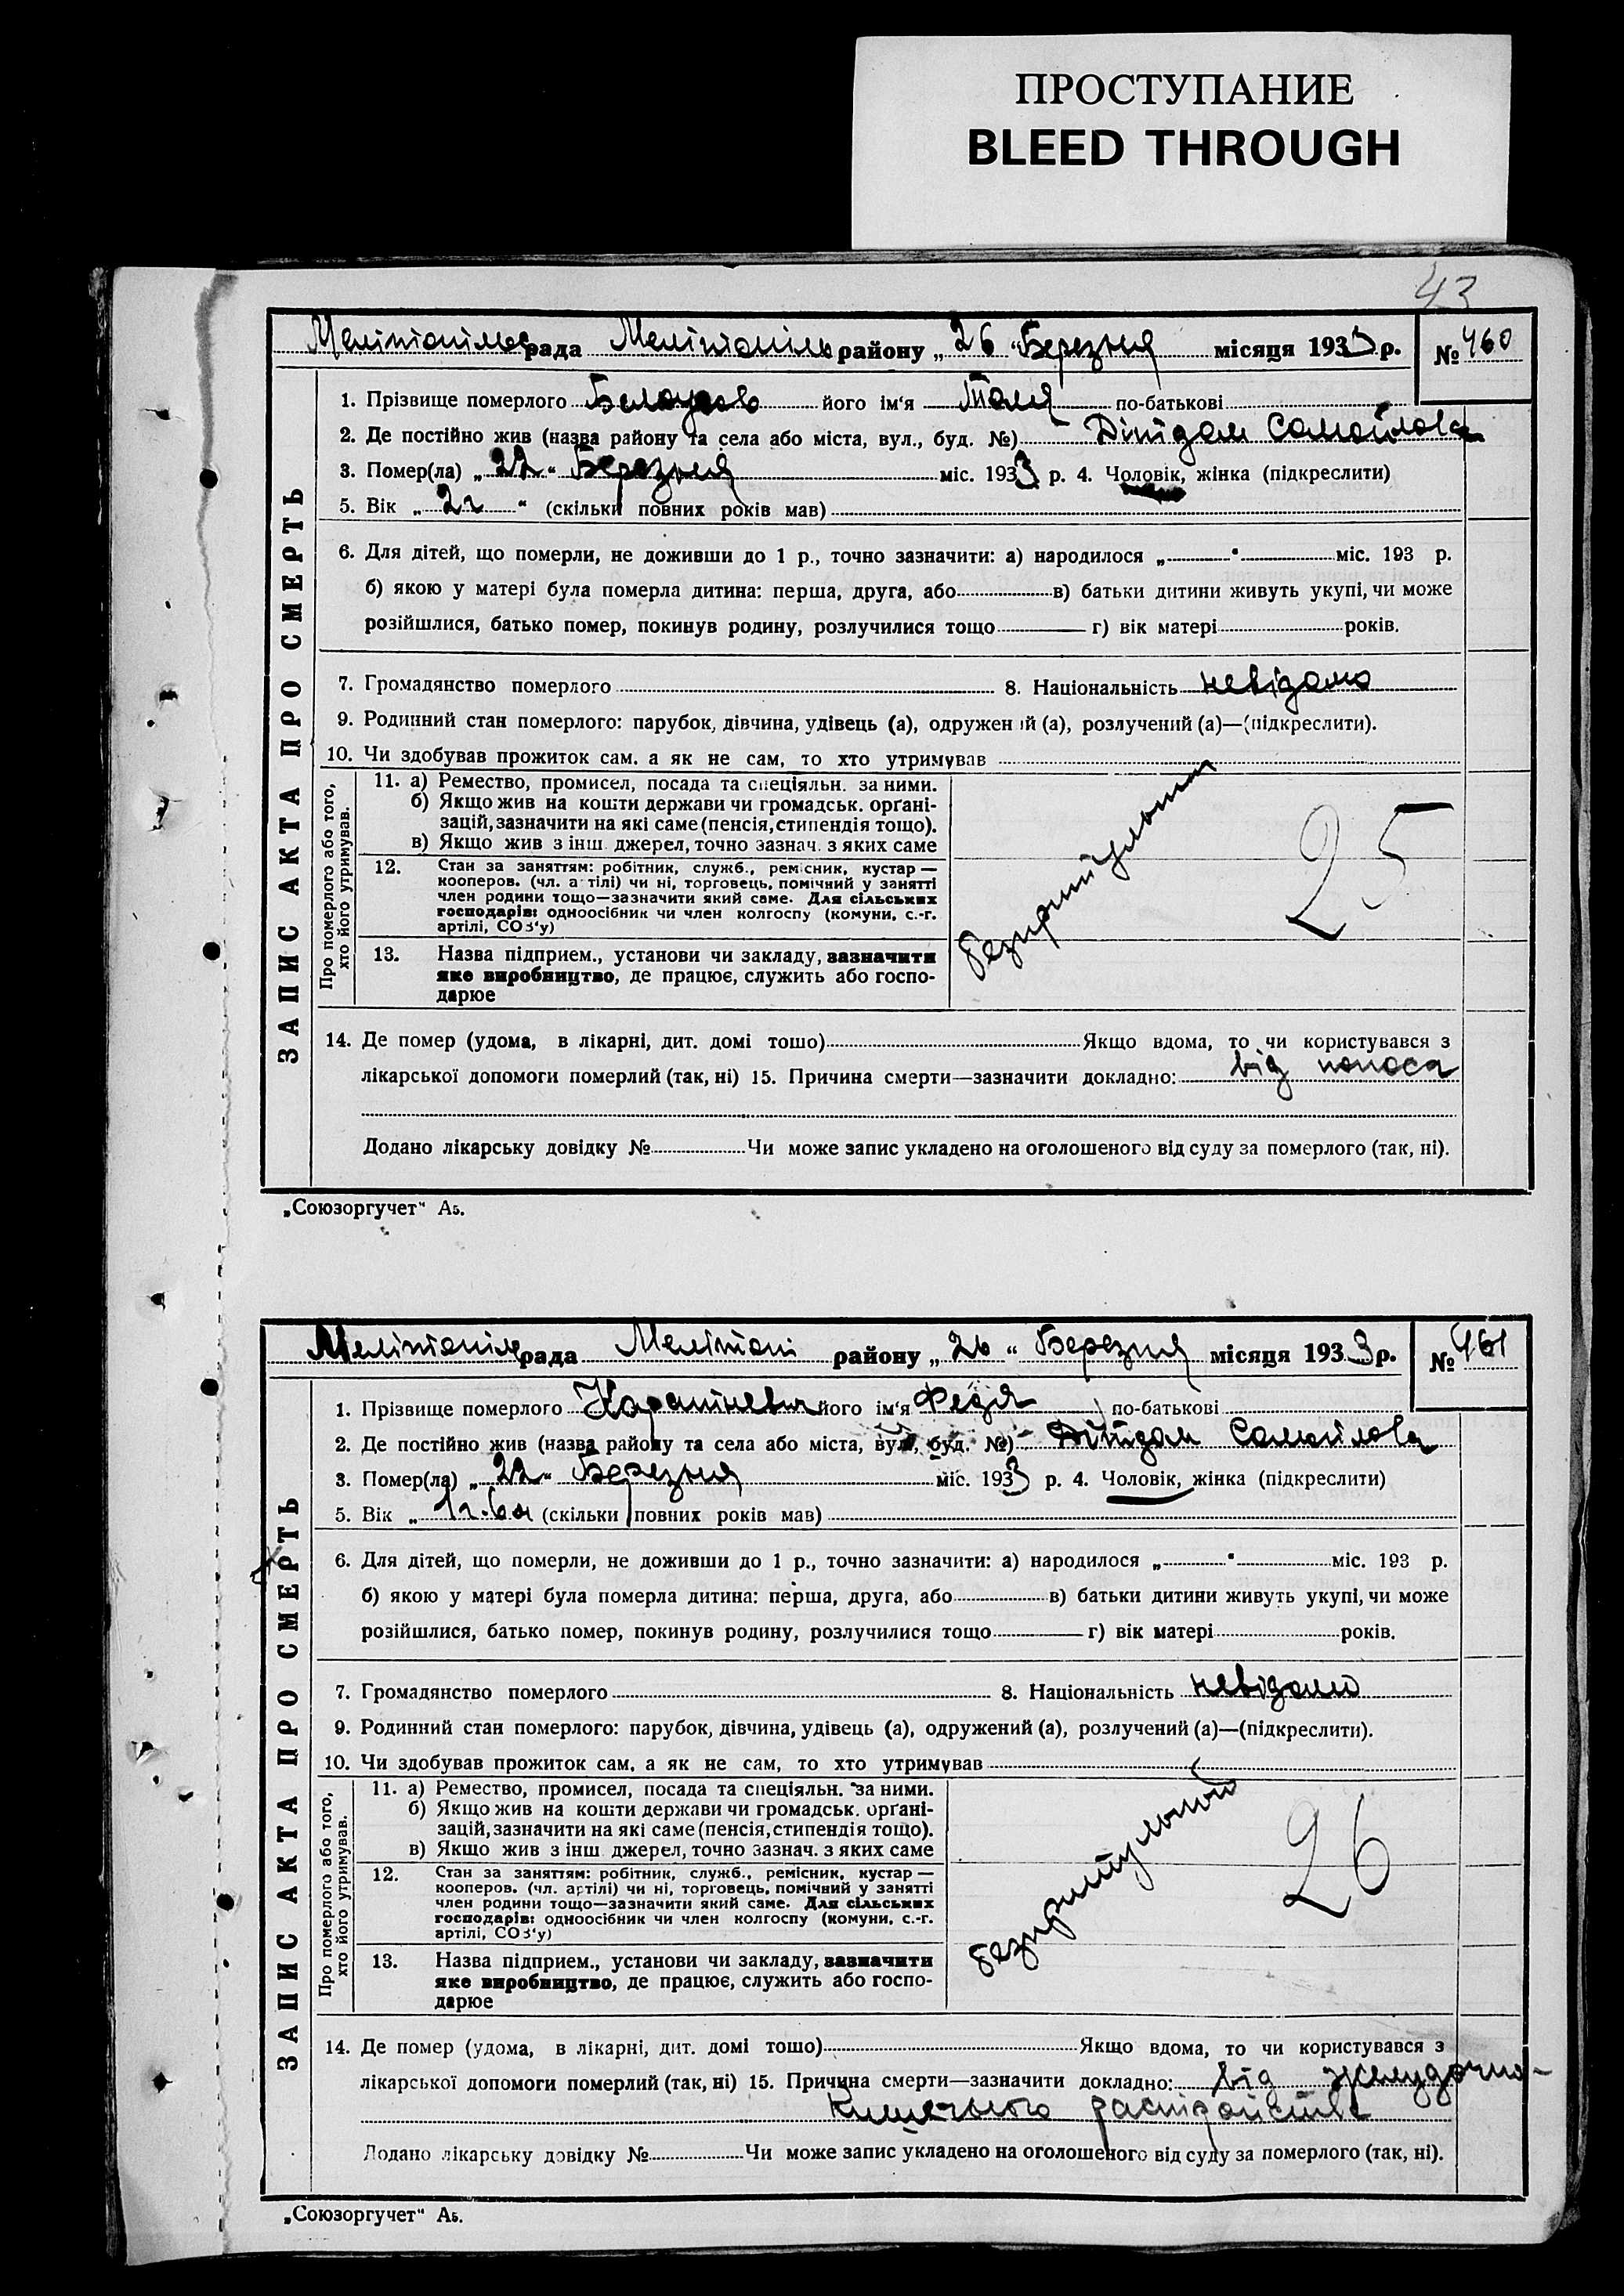 ПРОСТУПАНИЕ
BLEED THROUGH
43
ЗАПИС АКТА ПРО СМЕРТЬ
Мелітопільс рада Мелітопіль району „ 26 “ Березня місяця 1933 р. № 460
1. Прізвище померлого Белоусов його ім‘я Толя по-батькові
2. Де постійно жив (назва району та села або міста, вул., буд. №) Дітдом Самойлова
3. Помер(ла) „ 22 “ Березня міс. 1933 р. 4. Чоловік, жінка (підкреслити)
5. Вік „ 2г “ (скільки повних років мав)
6. Для дітей, що померли, не доживши до 1 р., точно зазначити: а) народилося „ “ міс. 193 р.
б) якою у матері була померла дитина: перша, друга, або в) батьки дитини живуть укупі, чи може
розійшлися, батько помер, покинув родину, розлучилися тощо г) вік матері років.
7. Громадянство померлого 8. Національність невідомо
9. Родинний стан померлого: парубок, дівчина, удівець (а), одружений (а), розлучений (а)—(підкреслити).
10. Чи здобував прожиток сам, а як не сам, то хто утримував
Про померлого або того,
хто його утримував.
11. а) Ремество, промисел, посада та спеціяльн. за ними.
б) Якщо жив на кошти держави чи громадськ. орґані-
зацій, зазначити на які саме (пенсія, стипендія тощо).
в) Якщо жив з інш. джерел, точно зазнач. з яких саме
12. Стан за заняттям: робітник, служб., ремісник, кустар —
кооперов. (чл. артілі) чи ні, торговець, помічний у занятті
член родини тощо—зазначити який саме. Для сільських
господарів: одноосібник чи член колгоспу (комуни, с.-г.
артілі, СОЗ‘у)
13. Назва підприєм., установи чи закладу, зазначити
яке виробництво, де працює, служить або госпо-
дарює
25
14. Де помер (удома, в лікарні, дит. домі тощо) Якщо вдома, то чи користувався з
лікарської допомоги померлий (так, ні) 15. Причина смерти—зазначити докладно: від поноса
Додано лікарську довідку № Чи може запис укладено на оголошеного від суду за померлого (так, ні).
„Союзоргучет“ А5.
ЗАПИС АКТА ПРО СМЕРТЬ
Мелітопільс рада Мелітопі району „ 26 “ Березня місяця 1933 р. № 461
1. Прізвище померлого його ім‘я Федя по-батькові
2. Де постійно жив (назва району та села або міста, вул., буд. №) Дітдом Самойлова
3. Помер(ла) „ 22 “ Березня міс. 1933 р. 4. Чоловік, жінка (підкреслити)
5. Вік „ 1г. 6м (скільки повних років мав)
6. Для дітей, що померли, не доживши до 1 р., точно зазначити: а) народилося „ “ міс. 193 р.
б) якою у матері була померла дитина: перша, друга, або в) батьки дитини живуть укупі, чи може
розійшлися, батько помер, покинув родину, розлучилися тощо г) вік матері років.
7. Громадянство померлого 8. Національність невідомо
9. Родинний стан померлого: парубок, дівчина, удівець (а), одружений (а), розлучений (а)—(підкреслити).
10. Чи здобував прожиток сам, а як не сам, то хто утримував
Про померлого або того,
хто його утримував.
11. а) Ремество, промисел, посада та спеціяльн. за ними.
б) Якщо жив на кошти держави чи громадськ. орґані-
зацій, зазначити на які саме (пенсія, стипендія тощо).
в) Якщо жив з інш. джерел, точно зазнач. з яких саме
12. Стан за заняттям: робітник, служб., ремісник, кустар —
кооперов. (чл. артілі) чи ні, торговець, помічний у занятті
член родини тощо—зазначити який саме. Для сільських
господарів: одноосібник чи член колгоспу (комуни, с.-г.
артілі, СОЗ‘у)
13. Назва підприєм., установи чи закладу, зазначити
яке виробництво, де працює, служить або госпо-
дарює
безпритульний
26
14. Де помер (удома, в лікарні, дит. домі тощо) Якщо вдома, то чи користувався з
лікарської допомоги померлий (так, ні) 15. Причина смерти—зазначити докладно: від желудочно-
кишечного растройства
Додано лікарську довідку № Чи може запис укладено на оголошеного від суду за померлого (так, ні).
„Союзоргучет“ А5.